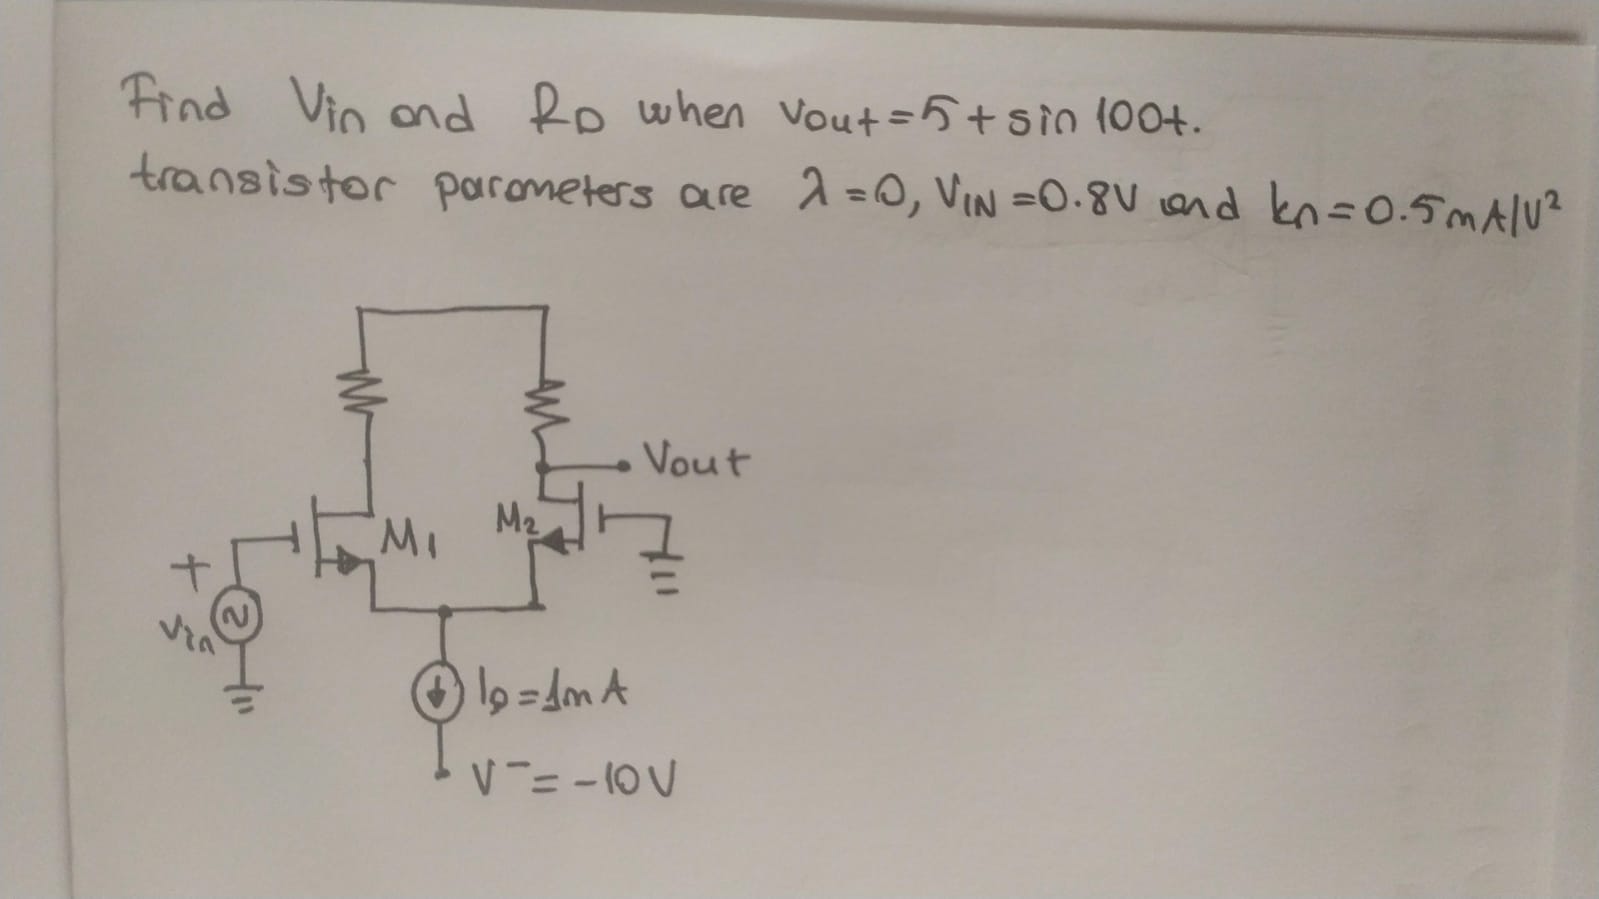 Find Vin and RD when Vout = 5 + sin 100t.
transistor parameters are λ = 0, VIN = 0.8V and kn = 0.5mA/V²
Vout
M2
M1
+
Vin
IQ = 1mA
V⁻ = -10V